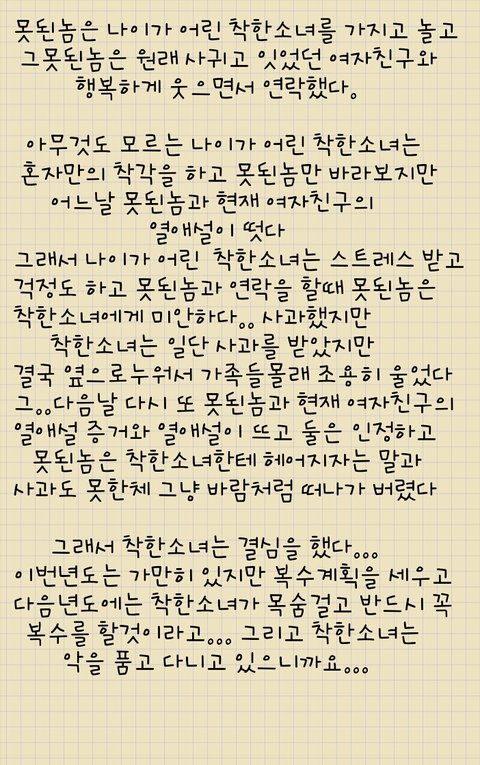 못된놈은 나이가 어린 착한소녀를 가지고 놀고
그못된놈은 원래 사귀고 잇었던 여자친구와
행복하게 웃으면서 연락했다.
아무것도 모르는 나이가 어린 착한소녀는
혼자만의 착각을 하고 못된놈만 바라보지만
어느날 못된놈과 현재 여자친구의
열애설이 떳다
그래서 나이가 어린 착한소녀는 스트레스 받고
걱정도 하고 못된놈과 연락을 할때 못된놈은
착한소녀에게 미안하다.. 사과했지만
착한소녀는 일단 사과를 받았지만
결국 옆으로누워서 가족들몰래 조용히 울었다
그..다음날 다시 또 못된놈과 현재 여자친구의
열애설 증거와 열애설이 뜨고 둘은 인정하고
못된놈은 착한소녀한테 헤어지자는 말과
사과도 못한체 그냥 바람처럼 떠나가 버렸다
그래서 착한소녀는 결심을 했다...
이번년도는 가만히 있지만 복수계획을 세우고
다음년도에는 착한소녀가 목숨걸고 반드시 꼭
복수를 할것이라고... 그리고 착한소녀는
악을 품고 다니고 있으니까요...